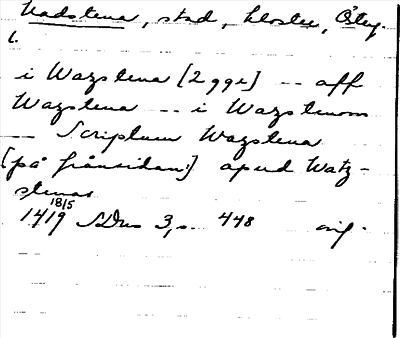 Vadstena, stad, kloster, Östg.
1.
i Wazstena [2 ggr] -- aff
Wazstena -- i Wazstenom
-- Scriptum Wazstena
[på frånsidan:] apud Watz-
stenas
1419 18/5 SDns 3, s. 448 orig.